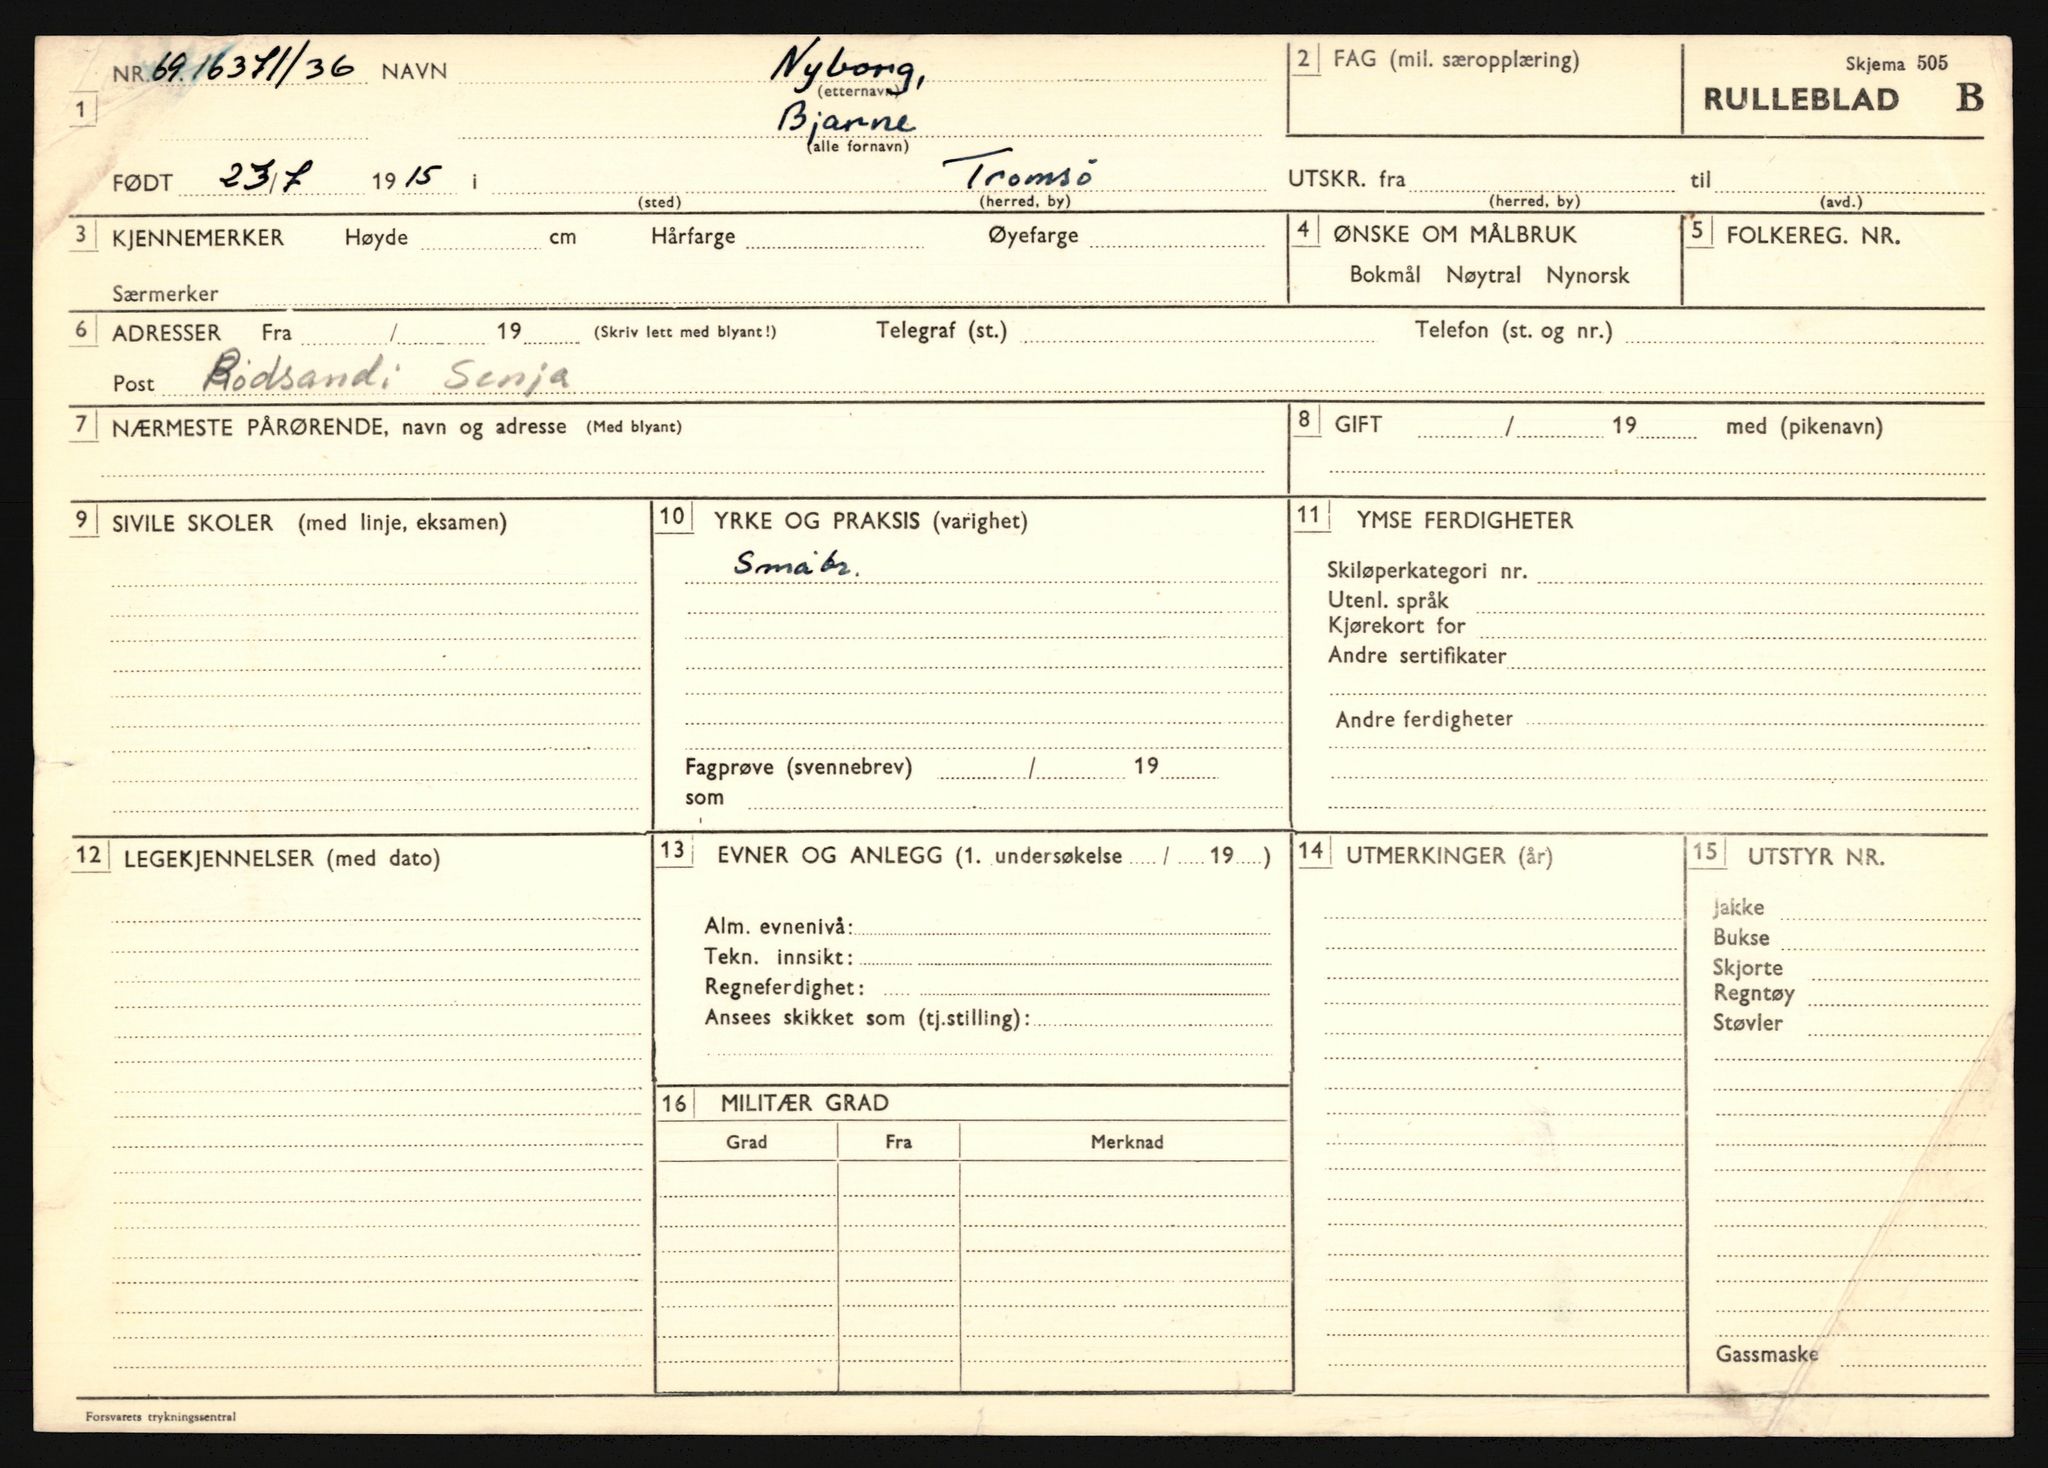 NR. 69.16371/36 NAVN Nyborg,
(etternavn)
1
Bjarne
(alle fornavn)
2 FAG (mil. særopplæring)
Skjema 505
RULLEBLAD B
FØDT 23/7 1915 i Tromsö
(sted) (herred, by)
UTSKR. fra til
(herred, by) (avd.)
3 KJENNEMERKER Høyde cm Hårfarge Øyefarge
Særmerker
4 ØNSKE OM MÅLBRUK
Bokmål Nøytral Nynorsk
5 FOLKEREG. NR.
6 ADRESSER Fra / 19 (Skriv lett med blyant!) Telegraf (st.) Telefon (st. og nr.)
Post Rödsand i Senja
7 NÆRMESTE PÅRØRENDE, navn og adresse (Med blyant)
8 GIFT / 19 med (pikenavn)
9 SIVILE SKOLER (med linje, eksamen)
10 YRKE OG PRAKSIS (varighet)
Småbr.
Fagprøve (svennebrev) / 19
som
11 YMSE FERDIGHETER
Skiløperkategori nr.
Utenl. språk
Kjørekort for
Andre sertifikater
Andre ferdigheter
12 LEGEKJENNELSER (med dato)
13 EVNER OG ANLEGG (1. undersøkelse / 19 )
Alm. evnenivå:
Tekn. innsikt:
Regneferdighet:
Ansees skikket som (tj.stilling):
14 UTMERKINGER (år)
15 UTSTYR NR.
Jakke
Bukse
Skjorte
Regntøy
Støvler
Gassmaske
16 MILITÆR GRAD
Grad Fra Merknad
Forsvarets trykningssentral